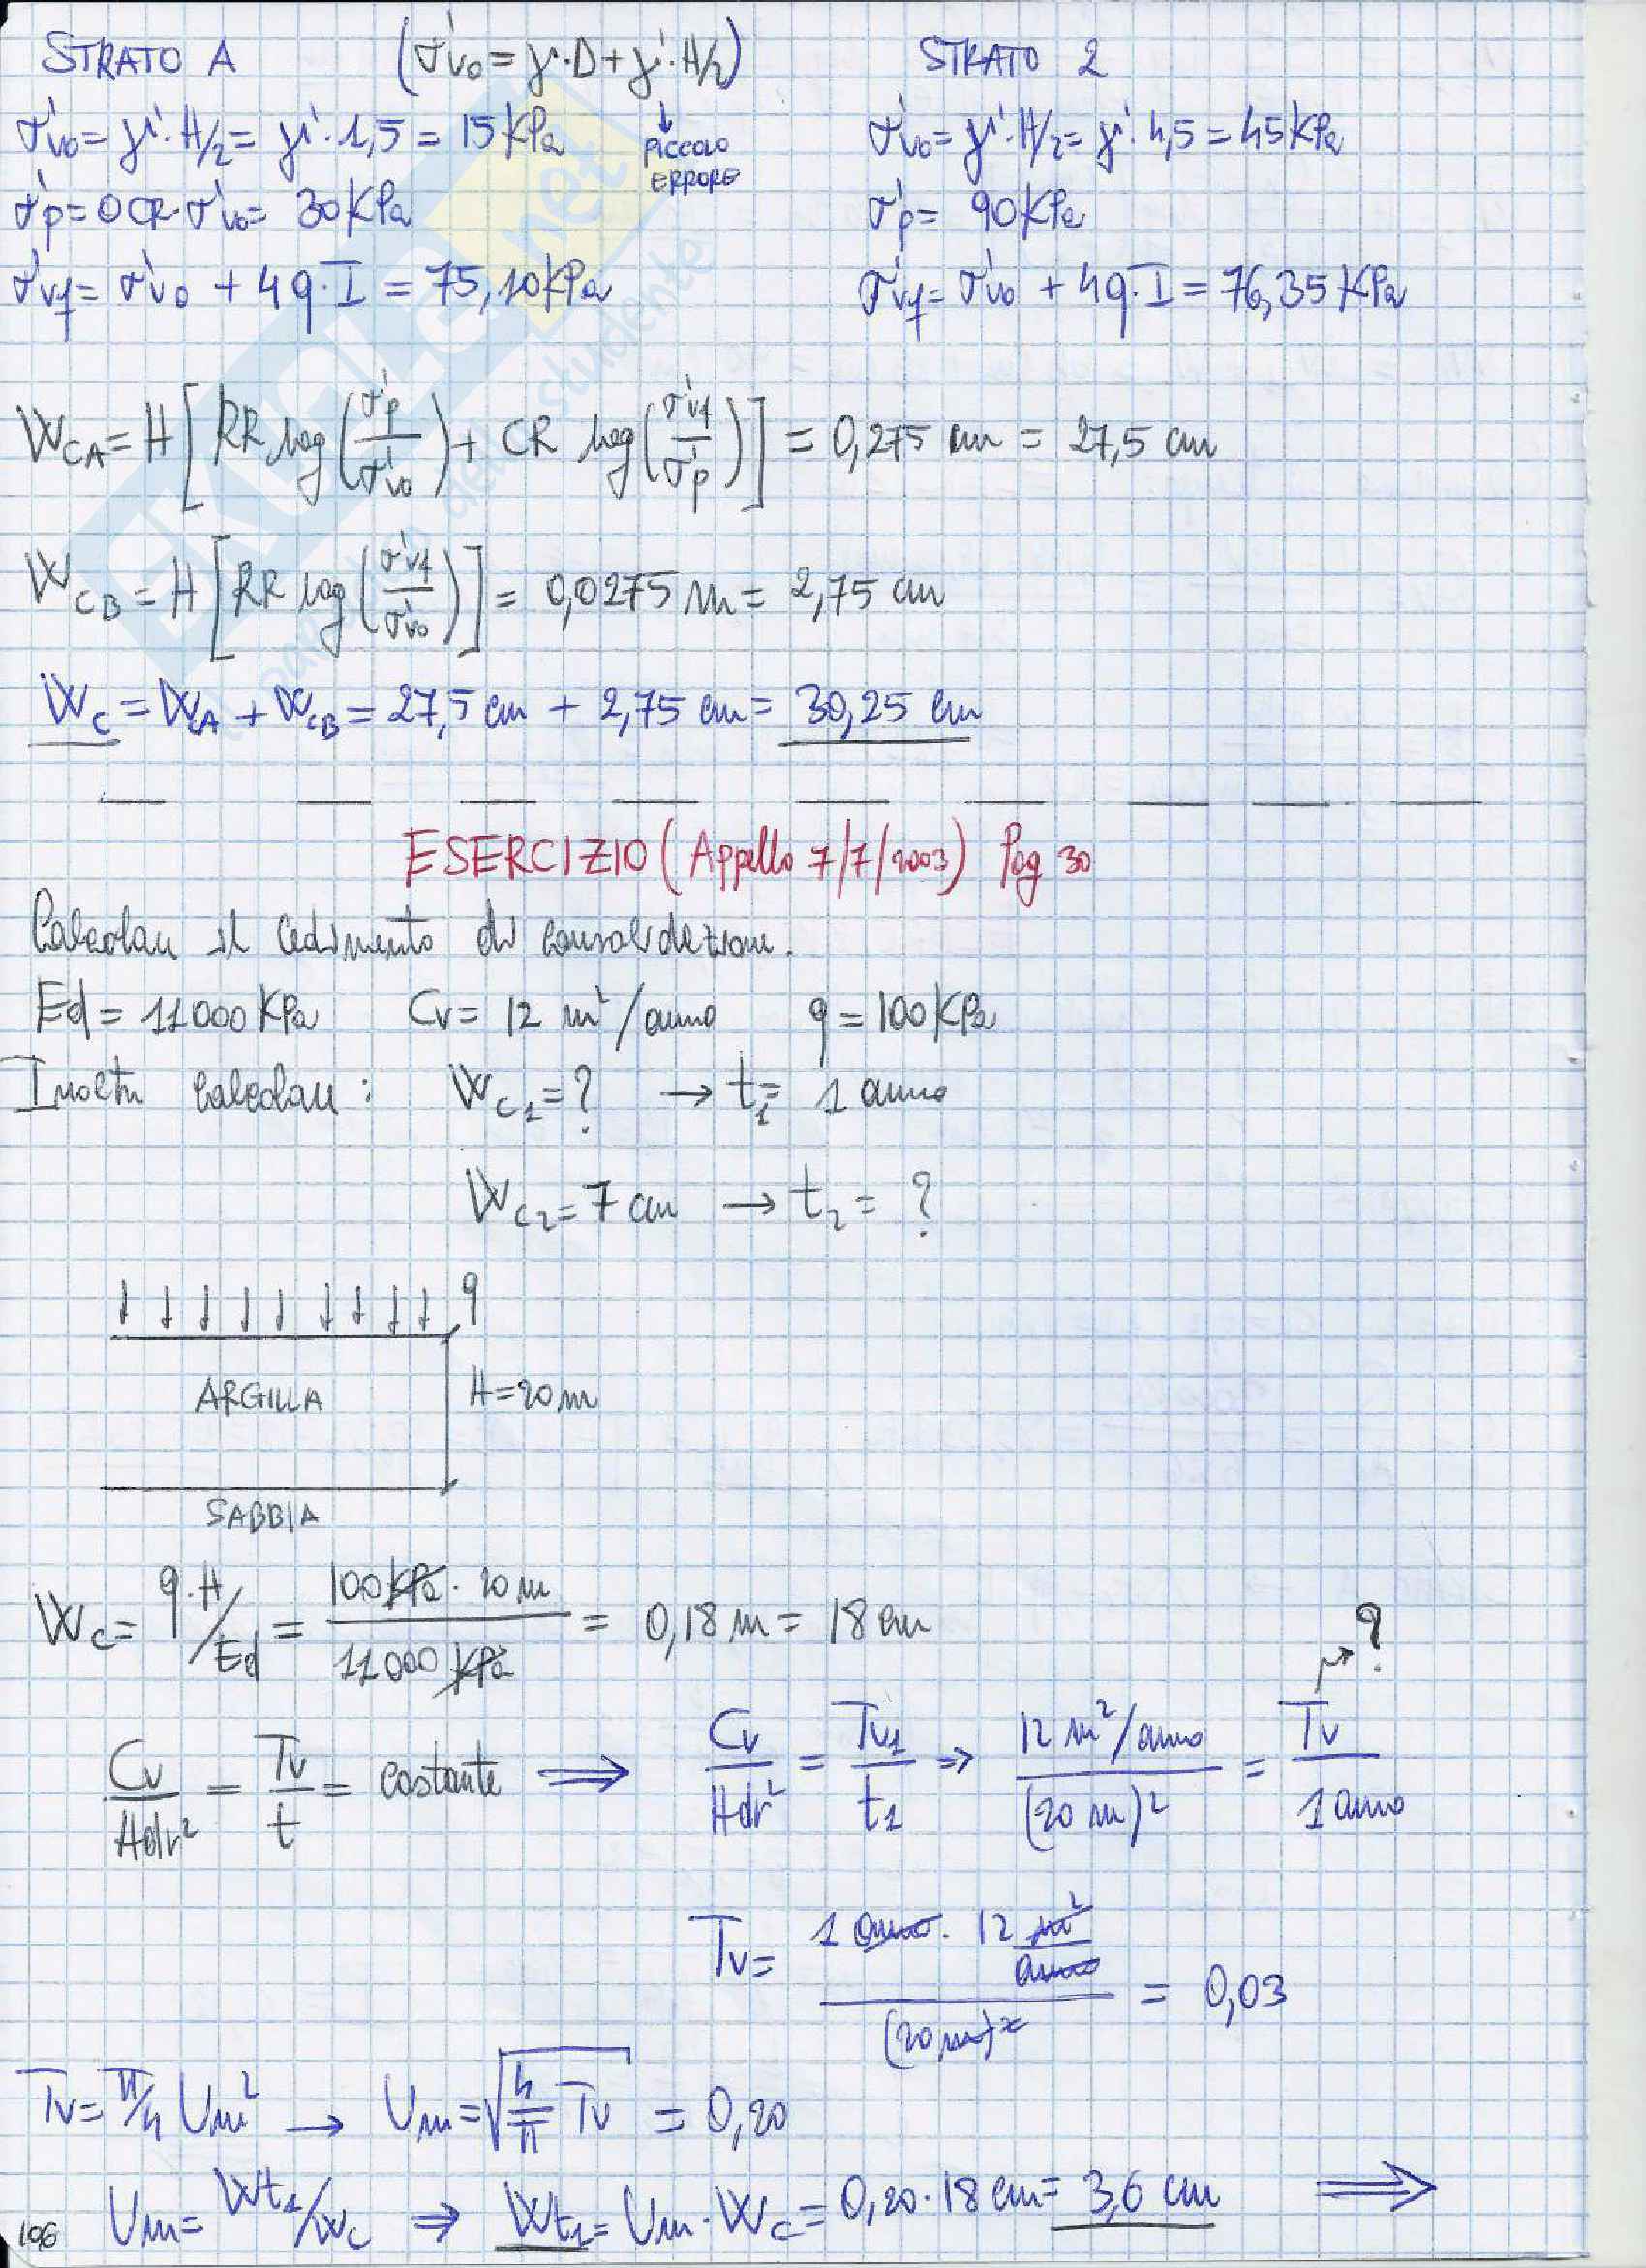 STRATO A (σ'vo = γ'·D + γ'·H/2) STRATO 2
σ'vo = γ'·H/2 = γ'·1,5 = 15 KPa ↓ PICCOLO ERRORE σ'vo = γ'·H/2 = γ'·4,5 = 45 KPa
σ'p = OCR·σ'vo = 30 KPa σ'p = 90 KPa
σ'vf = σ'vo + 4q·I = 75,10 KPa σ'vf = σ'vo + 4q·I = 76,35 KPa
WCA = H [RR log(σ'p/σ'vo) + CR log(σ'vf/σ'p)] = 0,275 cm = 27,5 cm
WCB = H [RR log(σ'vf/σ'vo)] = 0,0275 m = 2,75 cm
WC = WCA + WCB = 27,5 cm + 2,75 cm = 30,25 cm
ESERCIZIO (Appello 7/7/2003) Pag 30
Calcolare il cedimento di consolidazione.
Ed = 11000 KPa Cv = 12 m²/anno q = 100 KPa
Inoltre calcolare: WC1 = ? → t1 = 1 anno
WC2 = 7 cm → t2 = ?
q
ARGILLA H = 20 m
SABBIA
WC = q·H/Ed = 100 KPa · 20 m / 11000 KPa = 0,18 m = 18 cm
Cv/Hdr² = Tv/t = costante ⟹ Cv/Hdr² = Tv1/t1 ⇒ 12 m²/anno / (20 m)² = Tv / 1 anno → ?
Tv = 1 anno · 12 m²/anno / (20 m)² = 0,03
Tv = π/4 Um² → Um = √(4/π Tv) = 0,20
Um = Wt1/Wc ⇒ Wt1 = Um · Wc = 0,20 · 18 cm = 3,6 cm ⟹
106
SKUOLA.net